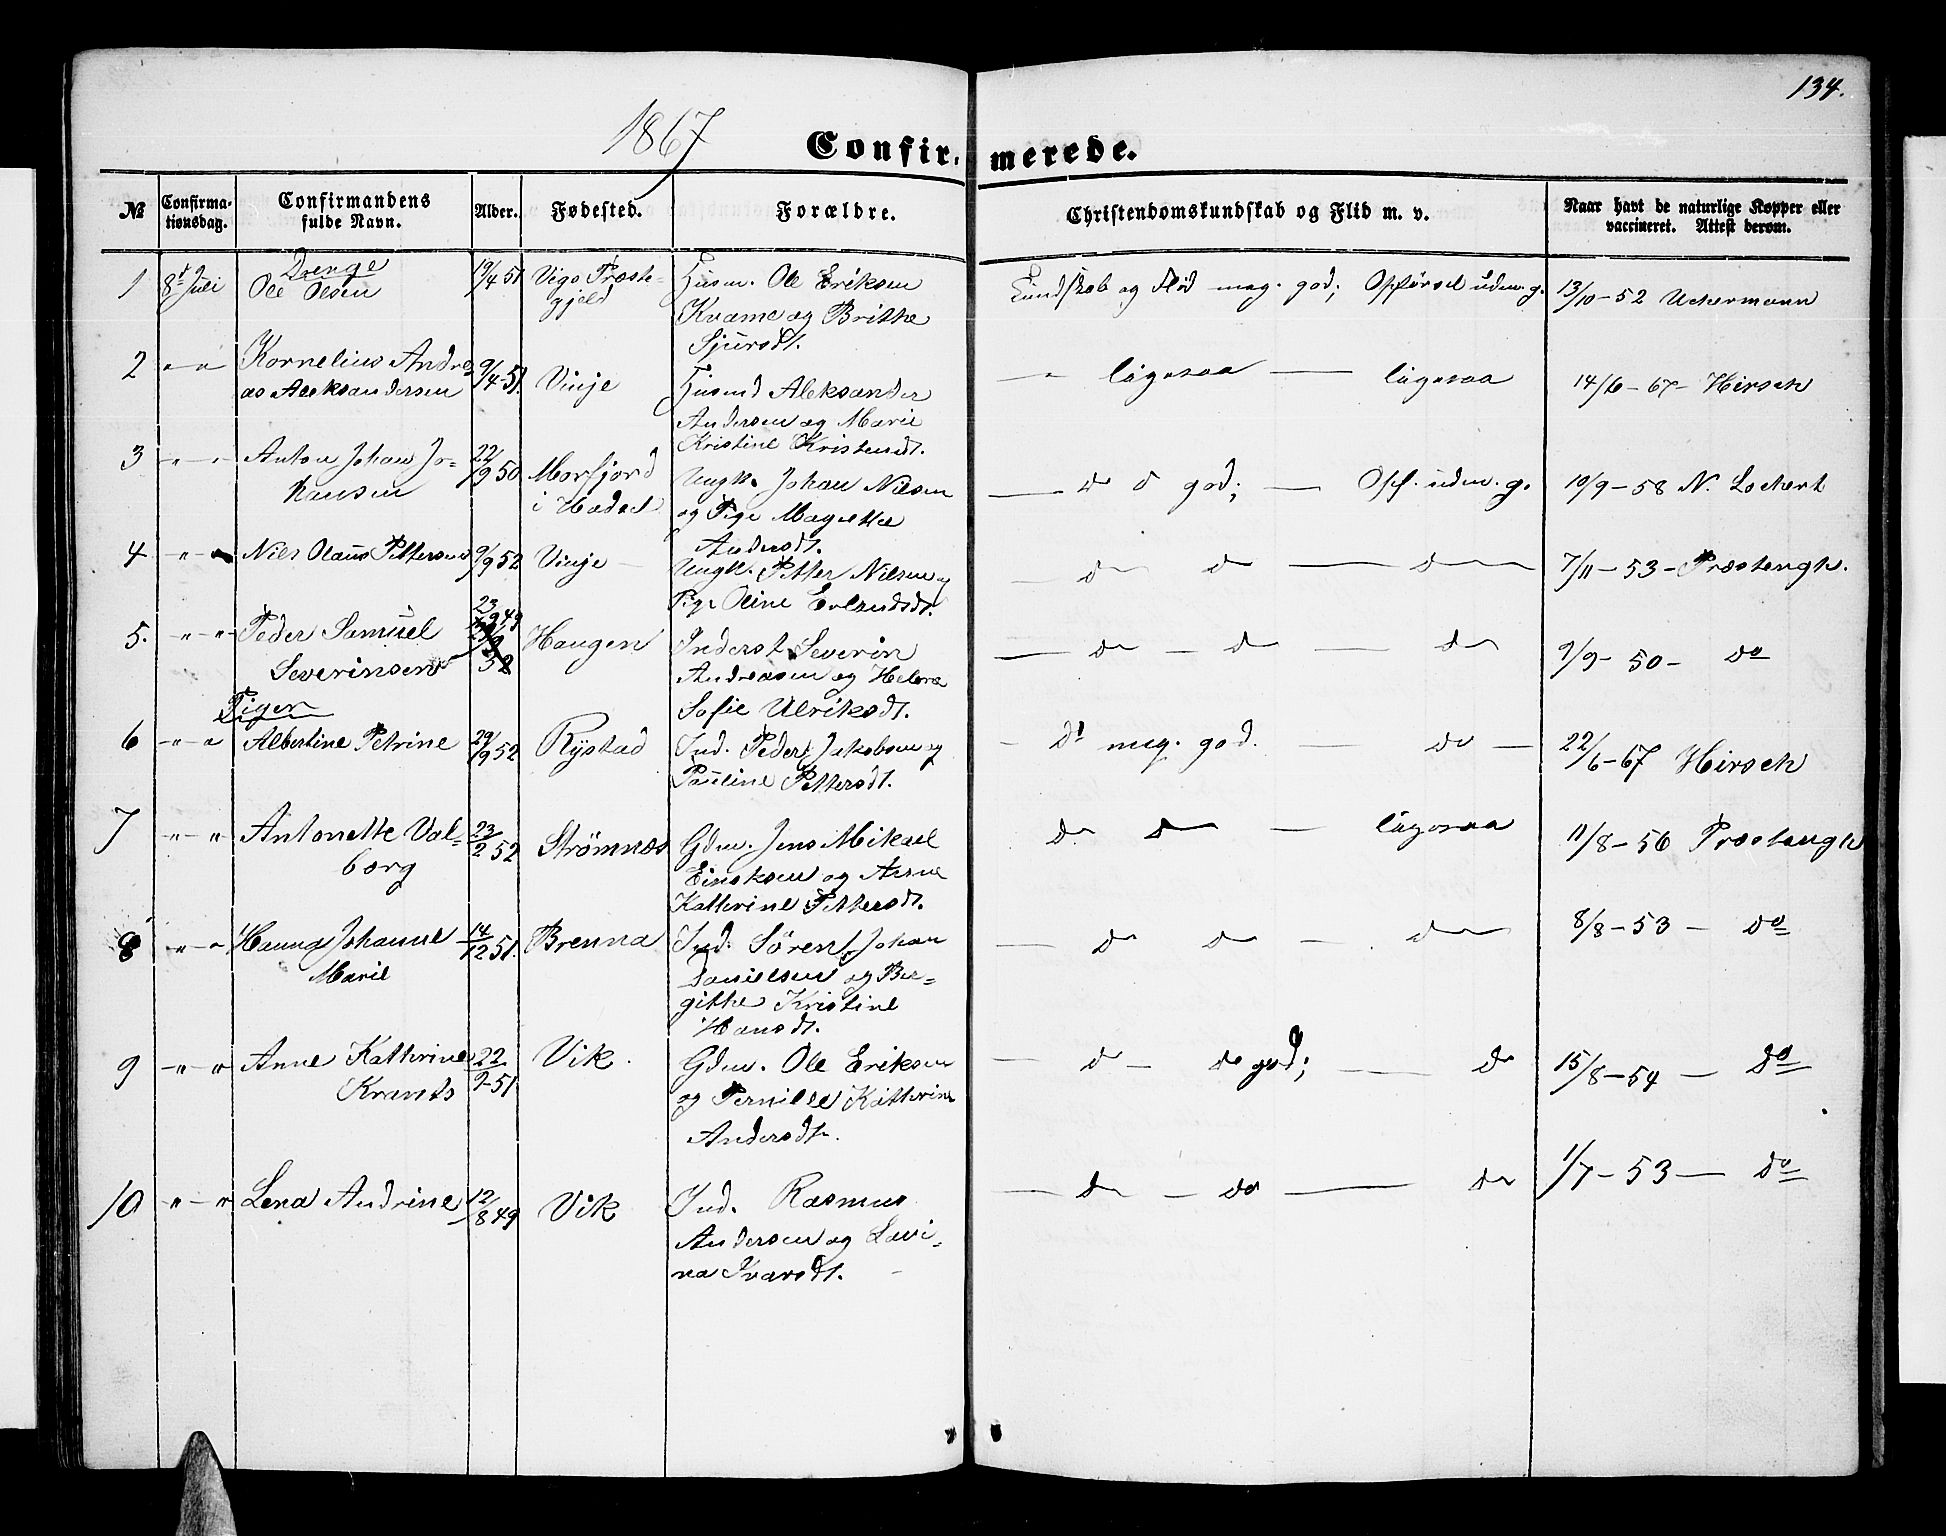 134.
1867
Confirmerede.
No
Confirmationsdag.
Confirmandens fulde Navn.
Alder.
Fødested.
Forældre.
Christendomskundskab og Flid m. v.
Naar havt de naturlige Kopper eller vaccineret. Attest derom.
Drenge
1 8d Juli Ole Olsen 19/4 51 Vigs Præste- Husm. Ole Eriksen Kundskab og Flid meg. god; Opførsel udm. g. 13/10-52 Uchermann
gjeld Kvame og Brithe
Sjursdt.
2 " " Kornelius Andre 9/4-51. Vinje Husmd Aleksander — " ligesaa — ligesaa 14/6-67- Hirsch
as Aleksandersen Andersen og Marie
Kristine Kristensdt.
3 " " Anton Johan Jo- 22/9 50 Morfjord Ungk. Johan Nilsen — do d god; — Opf. udm. g. 19/9-58 N. Lochert
hansen i Hadsel og Pige Magrethe
Andersdt.
4 " " Nils Olaus Pettersen 9/9 52 Vinje Ungk. Petter Nilsen og — do do — do 7/11-53-Præstengk.
Pige Oline Erlandsdt.
5. " " Peder Samuel 23 49 Haugen Inderst Severin — do — do — do 9/9-50- do
Severinsen Andreasen og Helene
Sofie Ulriksdt.
Piger
6 " " Albertine Petrine 29/9 52 Rystad Ind. Peder Jakobsen og — do meg. god. — do — 22/6-67 Hirsch
Pauline Pettersdt.
7 " " Antonette Val- 23/2 52 Strømnes Gdm. Jens Mikael do do — ligesaa 11/8-56 Præstengk
borg Eriksen og Anne
Katherine Pettersdt.
8 " " Hanna Johanne 14/12 51. Brenna Ind. Søren Johan — do do — do 8/8-53 — do
Marie Danielsen og Ber-
gitthe Kristine
Hansdt.
9 " " Anne Katherine 22/9-51 Vik. Gdm. Ole Eriksen — do — do god; — do 15/8-54 — do
Krants og Pernille Katherine
Andersdt.
10 " " Lena Andrine 12/8 49 Vik Ind. Rasmus — do — do — do 1/7-53 — do
Andersen og Lovi-
na Ivarsdt.